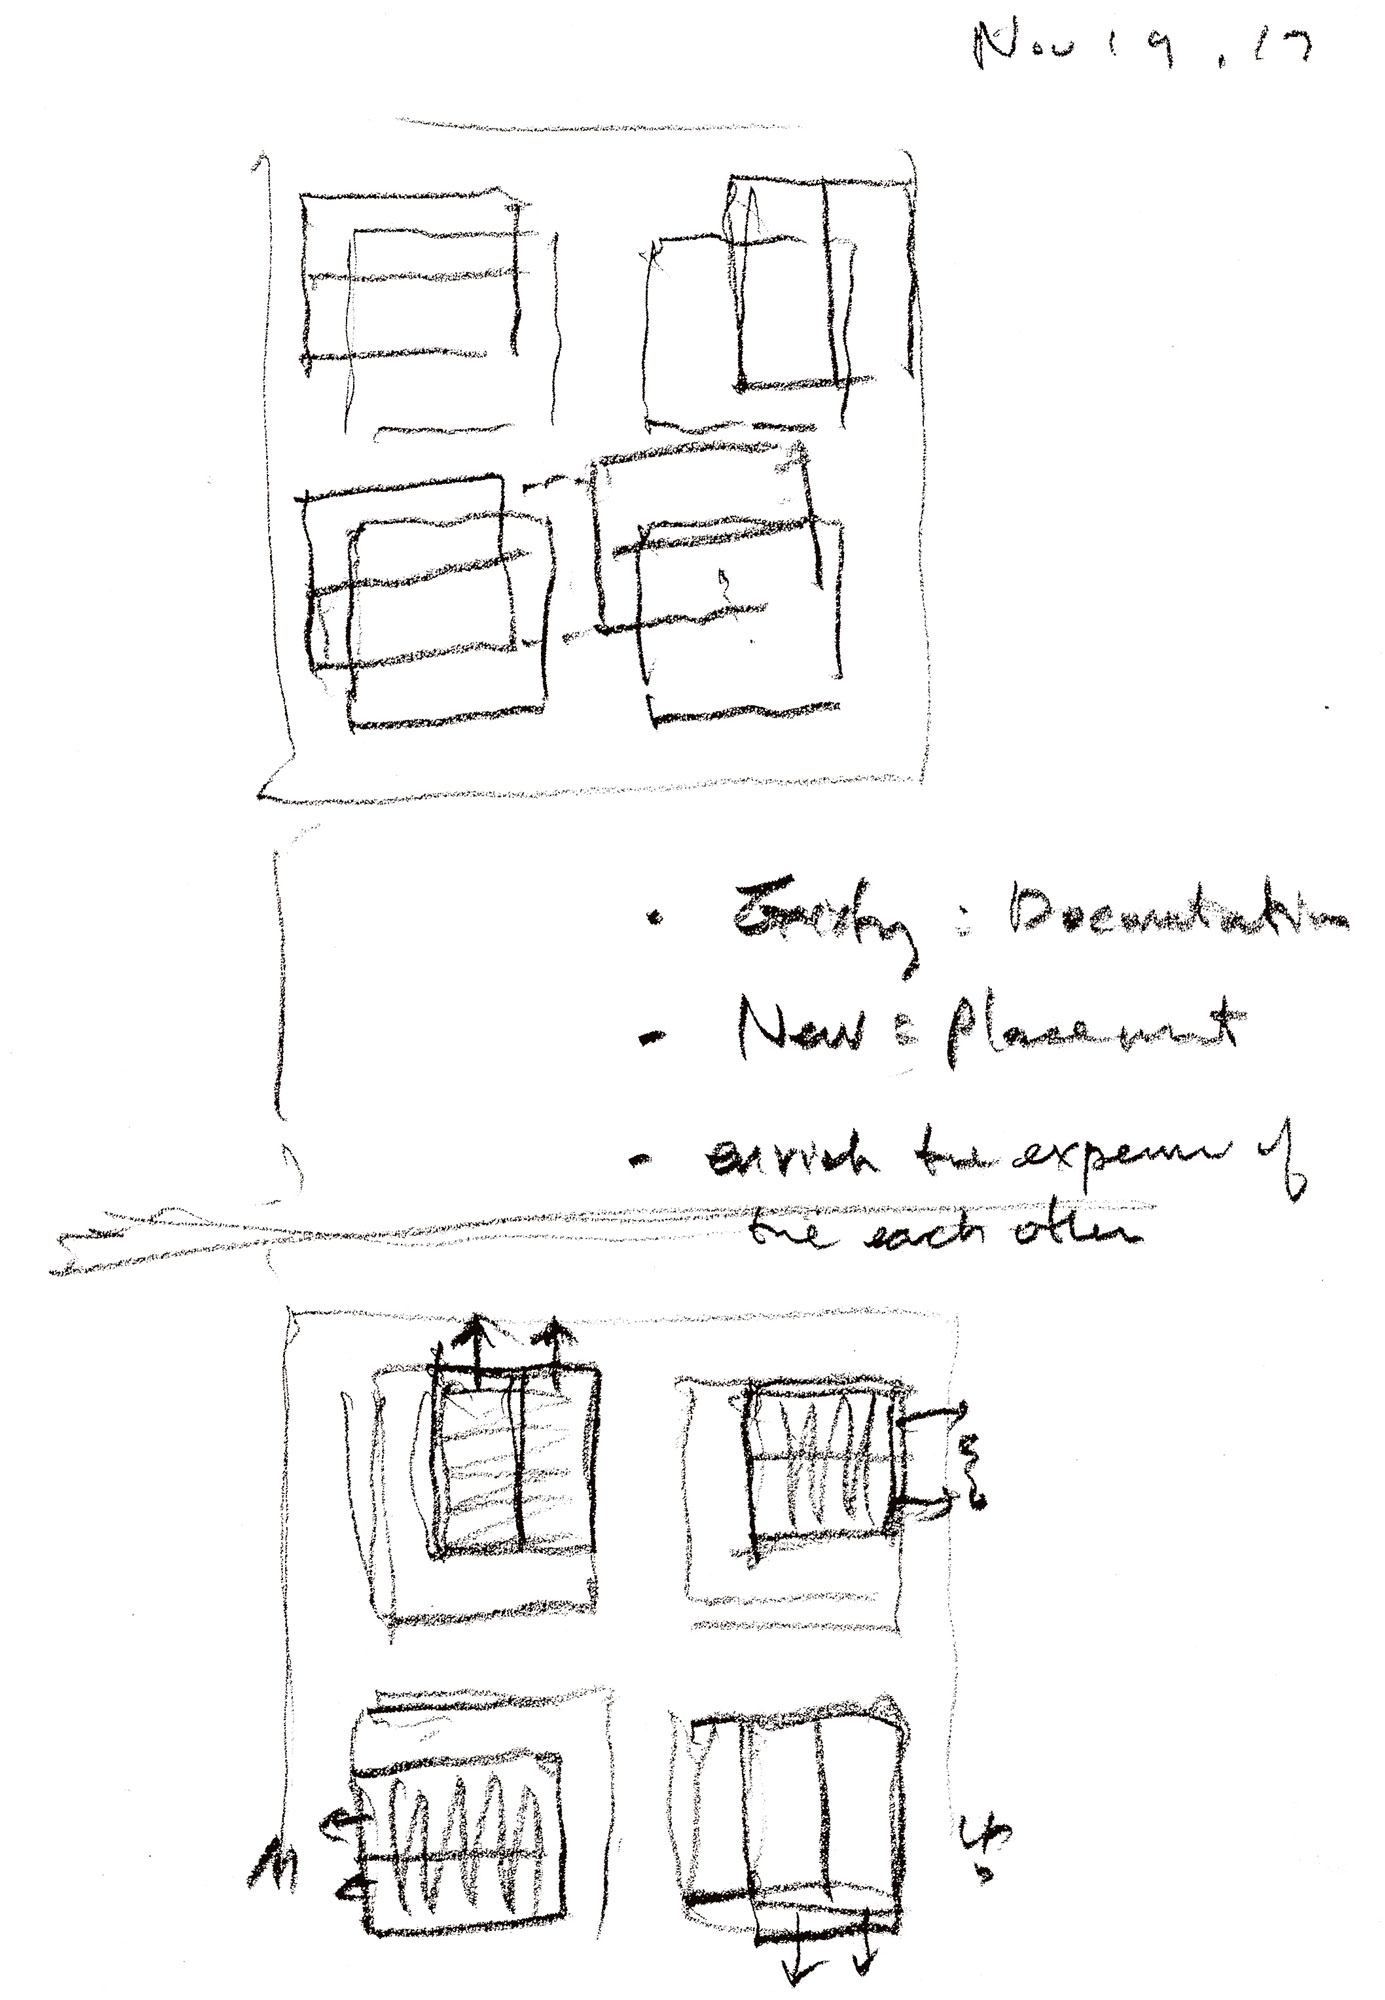 Nov 19 . 17
: Documentation
- New : Placement
- enrich the experience of
the each other